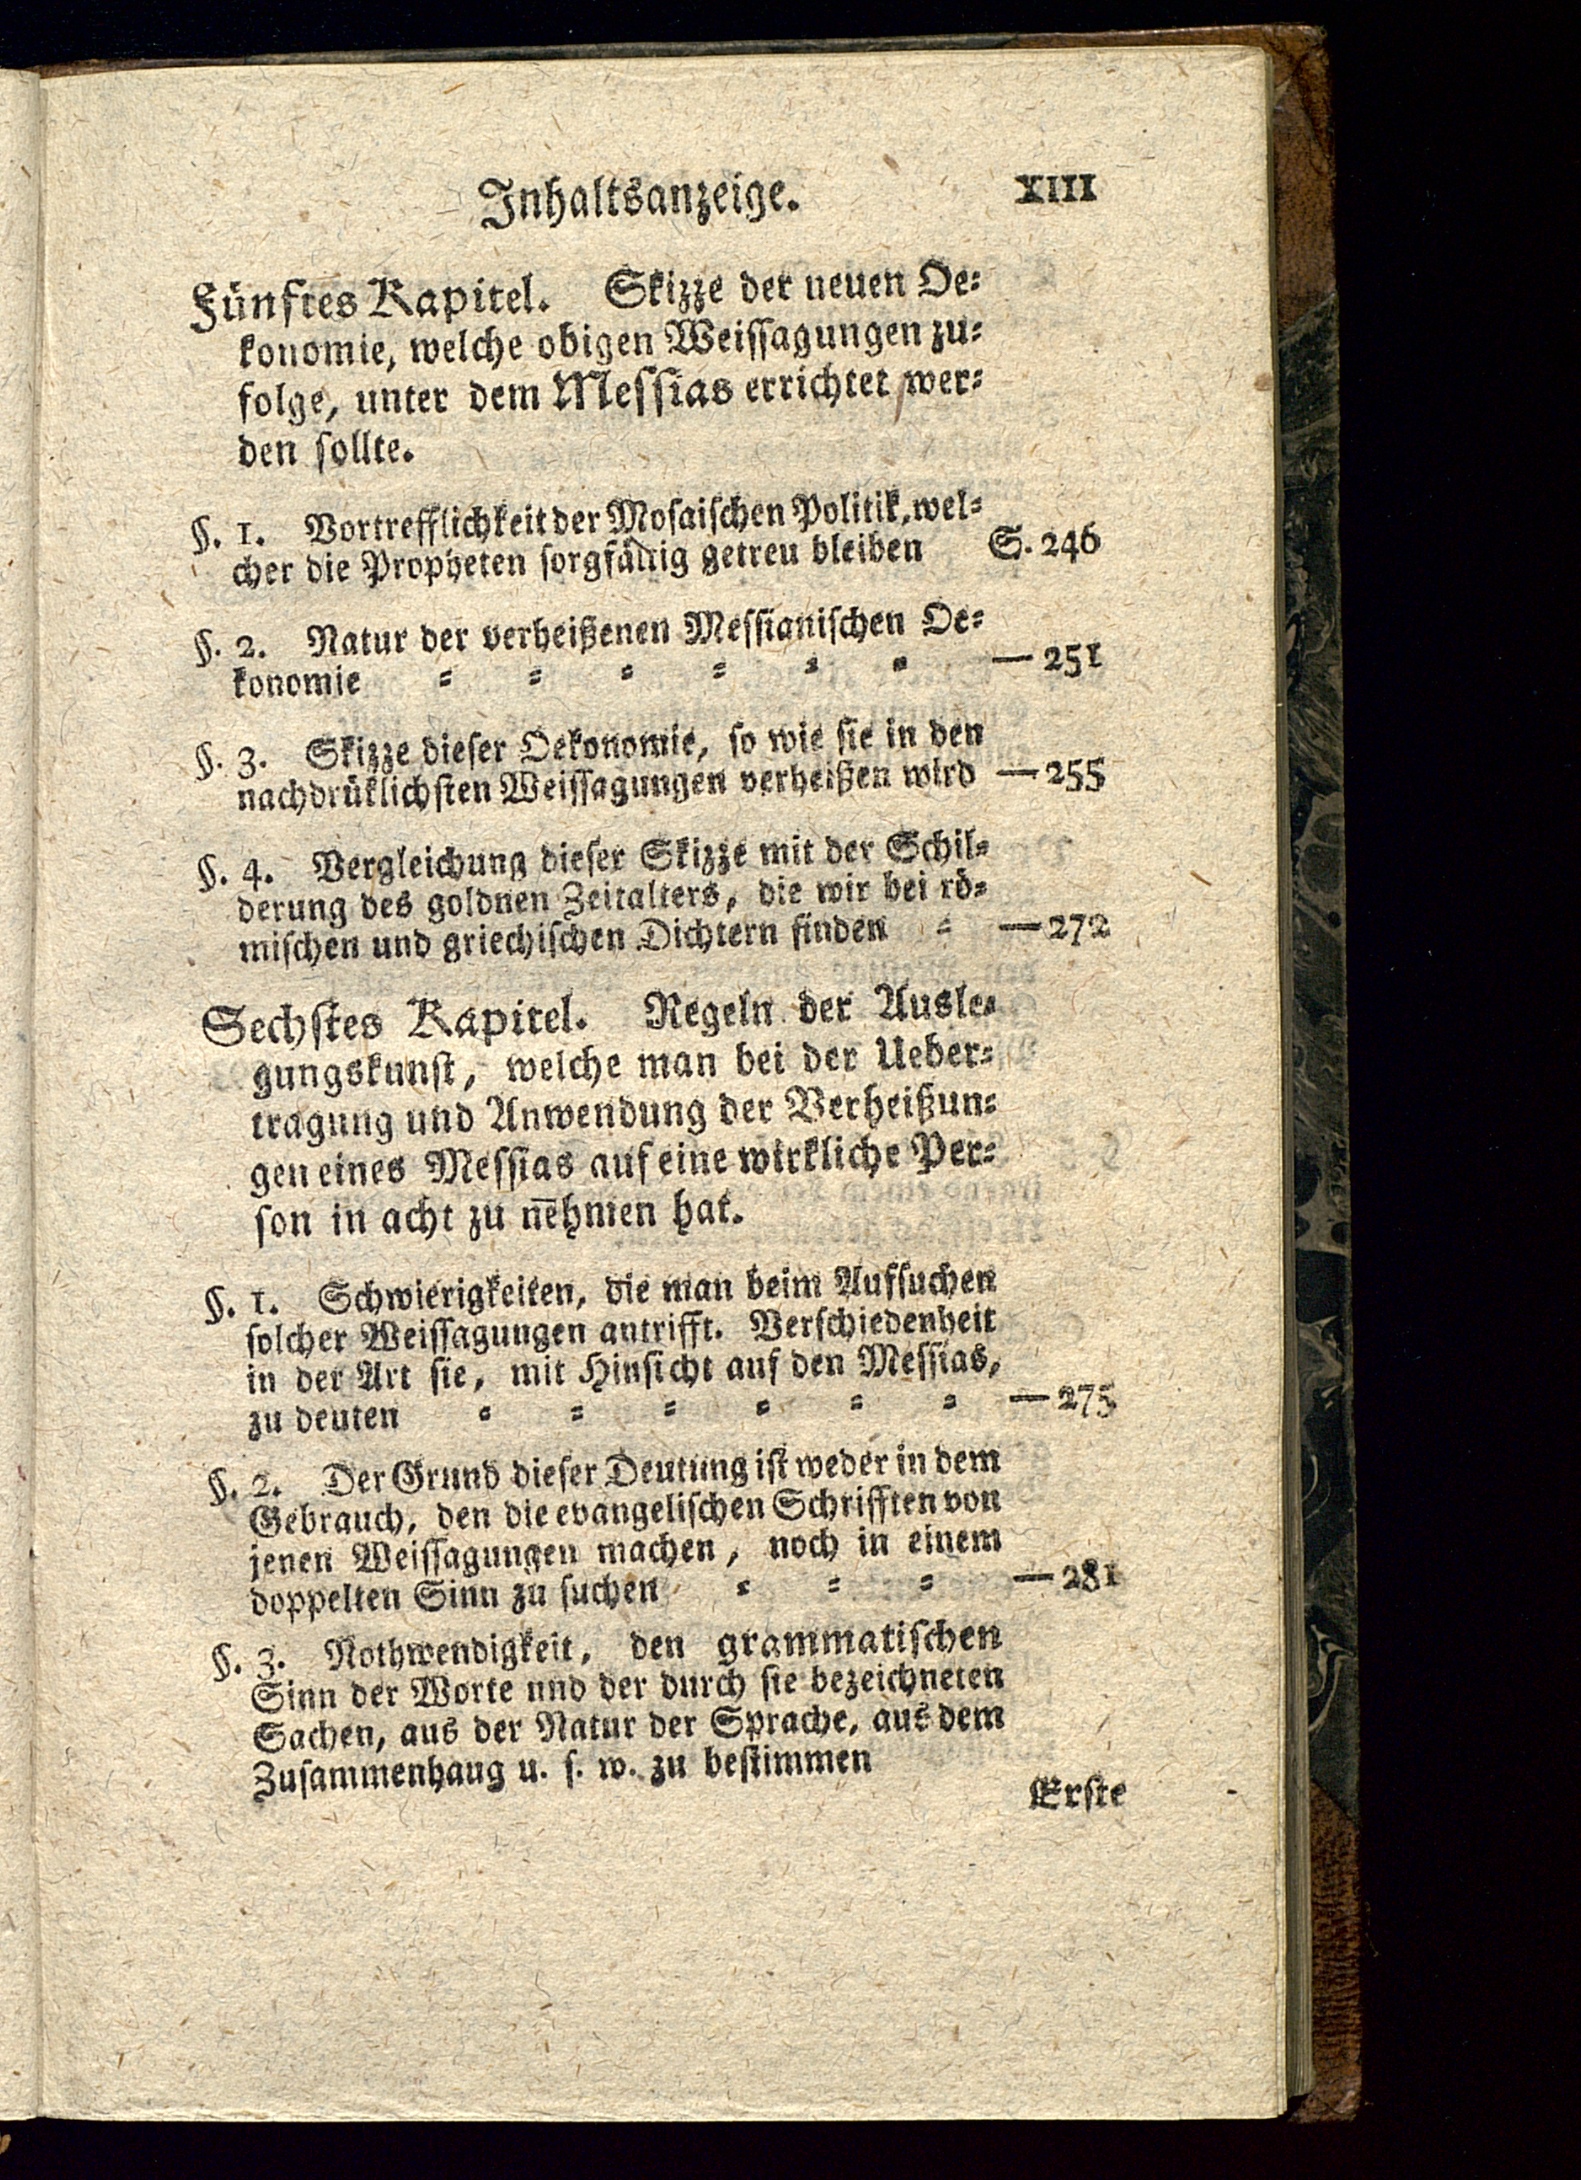 Inhaltsanzeige. XIII
Fünftes Kapitel. Skizze der neuen Oe⸗
konomie, welche obigen Weiſſagungen zu⸗
folge, unter dem Meſſias errichtet wer⸗
den ſollte.
§. 1. Vortrefflichkeit der Moſaiſchen Politik, wel⸗
cher die Propheten ſorgfältig getreu bleiben S. 246
§. 2. Natur der verheißenen Meſſianiſchen Oe⸗
konomie ⸗ ⸗ ⸗ ⸗ ⸗ ⸗ — 251
§. 3. Skizze dieſer Oekonomie, ſo wie ſie in den
nachdrüklichſten Weiſſagungen verheißen wird — 255
§. 4. Vergleichung dieſer Skizze mit der Schil⸗
derung des goldnen Zeitalters, die wir bei rö⸗
miſchen und griechiſchen Dichtern finden ⸗ — 272
Sechſtes Kapitel. Regeln der Ausle⸗
gungskunſt, welche man bei der Ueber⸗
tragung und Anwendung der Verheißun⸗
gen eines Meſſias auf eine wirkliche Per⸗
ſon in acht zu nehmen hat.
§. 1. Schwierigkeiten, die man beim Aufſuchen
ſolcher Weiſſagungen antrifft. Verſchiedenheit
in der Art ſie, mit Hinſicht auf den Meſſias,
zu deuten ⸗ ⸗ ⸗ ⸗ ⸗ ⸗ — 275
§. 2. Der Grund dieſer Deutung iſt weder in dem
Gebrauch, den die evangeliſchen Schrifften von
jenen Weiſſagungen machen, noch in einem
doppelten Sinn zu ſuchen ⸗ ⸗ ⸗ — 281
§. 3. Nothwendigkeit, den grammatiſchen
Sinn der Worte und der durch ſie bezeichneten
Sachen, aus der Natur der Sprache, aus dem
Zuſammenhang u. ſ. w. zu beſtimmen
Erſte